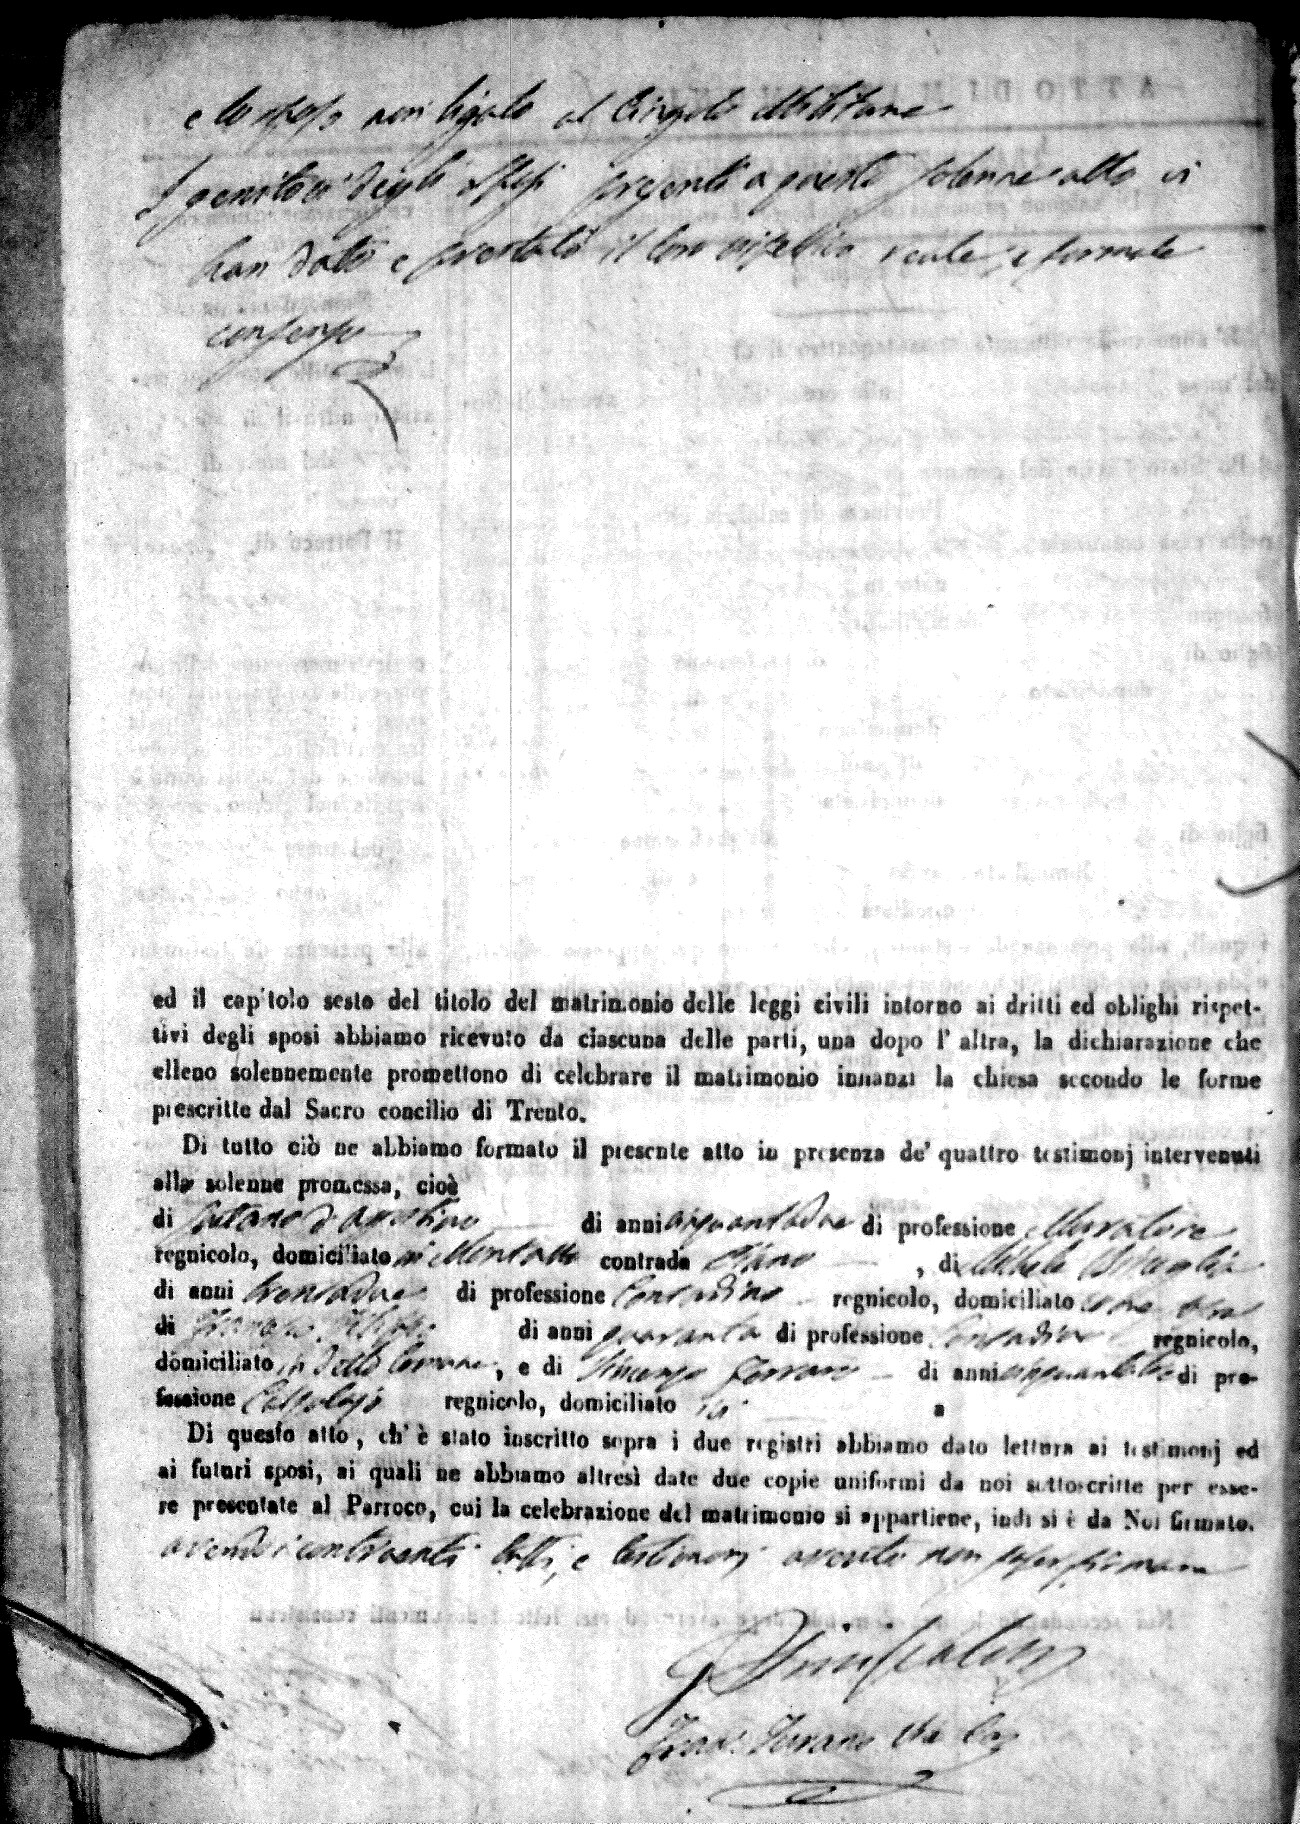 e lo sposo non ligato al Cingolo Militare
I genitori degli sposi presenti a questo solenne atto vi
han dato e prestato il loro rispettivo verbale, e formale
consenso
ed il capitolo sesto del titolo del matrimonio delle leggi civili intorno ai dritti ed oblighi rispet-
tivi degli sposi abbiamo ricevuto da ciascuna delle parti, una dopo l' altra, la dichiarazione che
elleno solennemente promettono di celebrare il matrimonio innanzi la chiesa secondo le forme
prescritte dal Sacro concilio di Trento.
Di tutto ciò ne abbiamo formato il presente atto in presenza de' quattro testimonj intervenuti
alla solenne promessa, cioè
di Gaetano d'Agostino di anni cinquantadue di professione Muratore
regnicolo, domiciliato in Montalto contrada , di Michele
di anni trentadue di professione Contadino regnicolo, domiciliato
di Francesco di anni quaranta di professione Contadino regnicolo,
domiciliato in detto Comune, e di Vincenzo Ferraro di anni di pro-
fessione Calzolajo regnicolo, domiciliato ivi
Di questo atto, ch' è stato inscritto sopra i due registri abbiamo dato lettura ai testimonj ed
ai futuri sposi, ai quali ne abbiamo altresì date due copie uniformi da noi sottoscritte per esse-
re presentate al Parroco, cui la celebrazione del matrimonio si appartiene, indi si è da Noi firmato.
avendo i contraenti tutti, e testimonj asserito non saper firmare